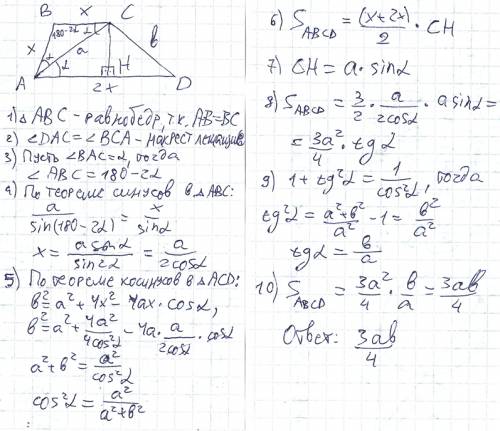 B x C
x 180-2α α a b
α α
A H D
2x
1) △ABC - равнобедр, т.к. AB=BC
2) ∠DAC=∠BCA - накрест лежащие
3) Пусть ∠BAC=α, тогда
∠ABC=180-2α
4) По теореме синусов в △ABC:
a/sin(180-2α) = x/sinα
x = a sinα/sin2α = a/2cosα
5) По теореме косинусов в △ACD:
b²=a²+4x²-4ax·cosα,
b²=a²+4a²/4cos²α-4a·a/2cosα·cosα
a²+b²=a²/cos²α
cos²α=a²/a²+b²
6) S_ABCD=(x+2x)/2·CH
7) CH=a·sinα
8) S_ABCD=3/2·a/2cosα·a sinα=
=3a²/4·tgα
9) 1+tg²α=1/cos²α, тогда
tg²α=a²+b²/a²-1=b²/a²
tgα=b/a
10) S_ABCD=3a²/4·b/a=3ab/4
Ответ: 3ab/4